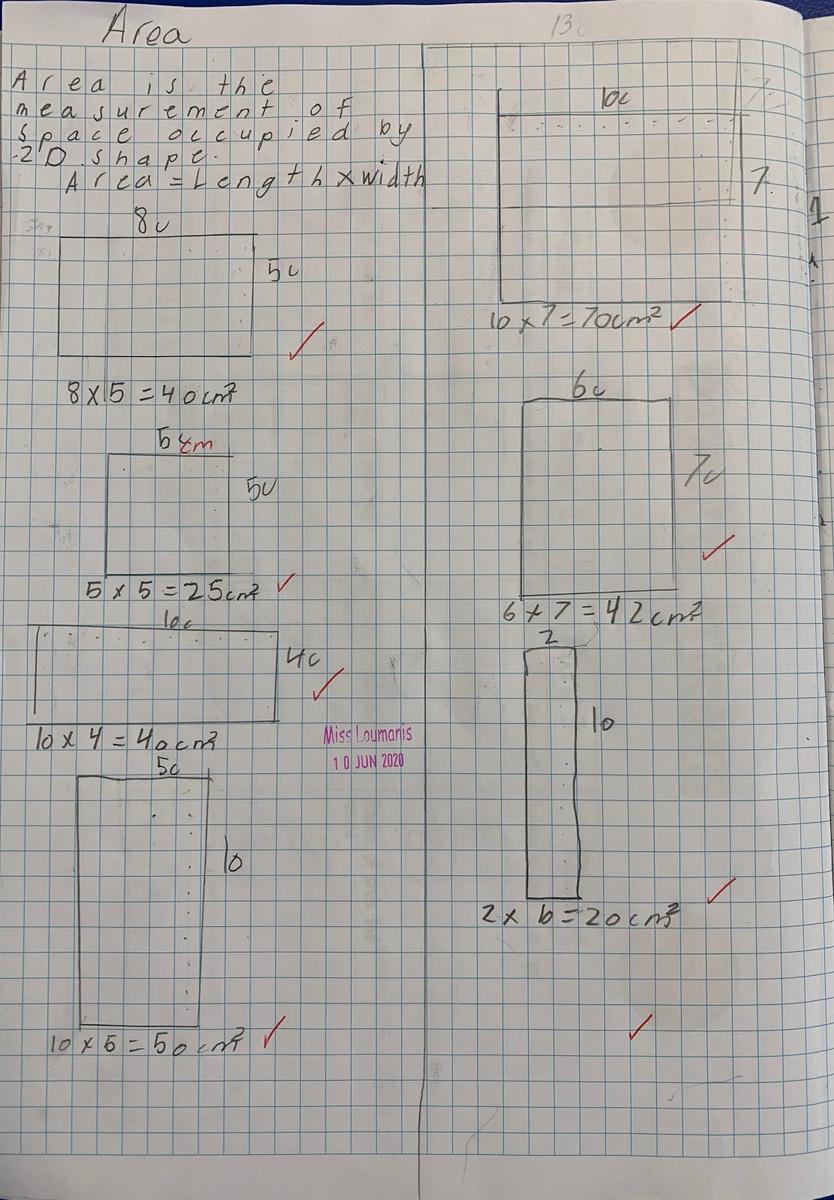 Area
Area is the
measurement of
space occupied by
2D shape.
Area = Length x width
8c
5c
8 x 5 = 40cm²
5cm
5c
5 x 5 = 25cm²
10c
4c
10 x 4 = 40cm²
5c
10
10 x 5 = 50cm²
Miss Loumanis
10 JUN 2020
13c
10c
7
10 x 7 = 70cm²
6c
7c
6 x 7 = 42cm²
2
10
2 x 10 = 20cm²
1